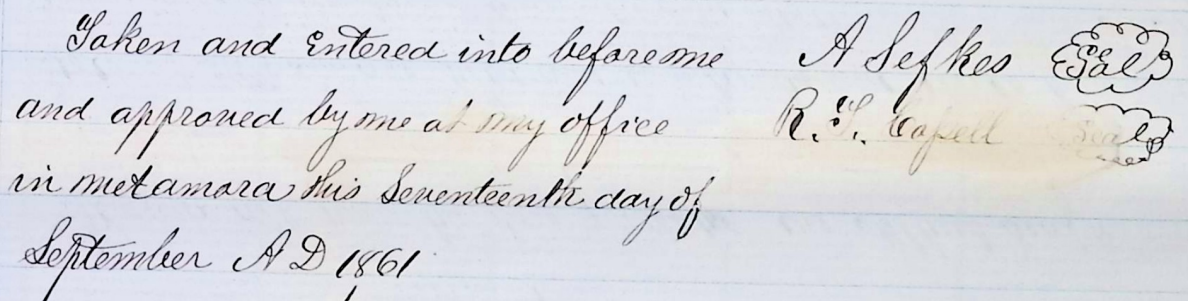 Taken and Entered into before me
and approved by me at my office
in metamora this Seventeenth day of
September A D 1861
A Sefkes Seal
R. T. Capell Seal